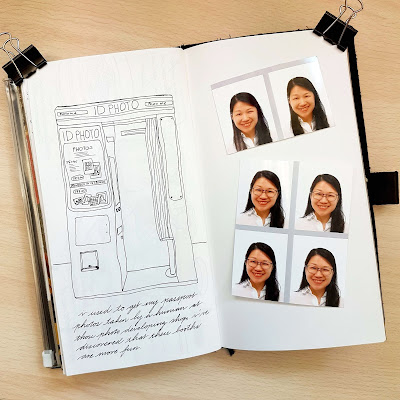 ID PHOTO
ID PHOTO
PHOTOS
I used to get my passport
photos taken by a human at
those photo developing shops. I've
discovered that these booths
are more fun.